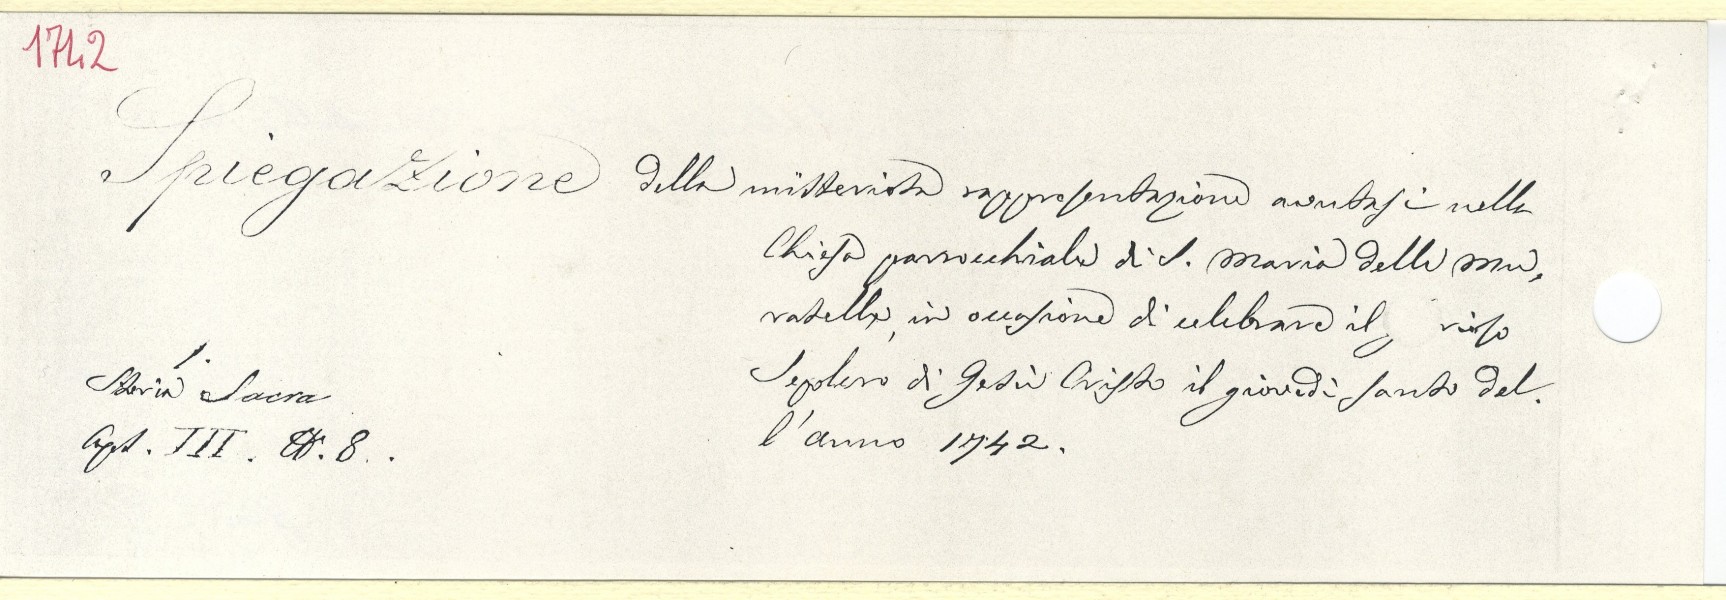 1742
Spiegazione della misteriosa rappresentazione aventasi nella
Chiesa parrocchiale di S. Maria delle Mu,
ratelle, in occasione di celebrare il
Sepolcro di Gesù Cristo il giovedì santo del.
l'anno 1742.
1.
Storia Sacra
Cart. III. N. 8..